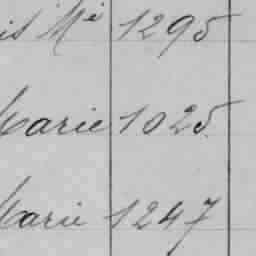 is Mi 1295
Marie 1025
Marie 1247